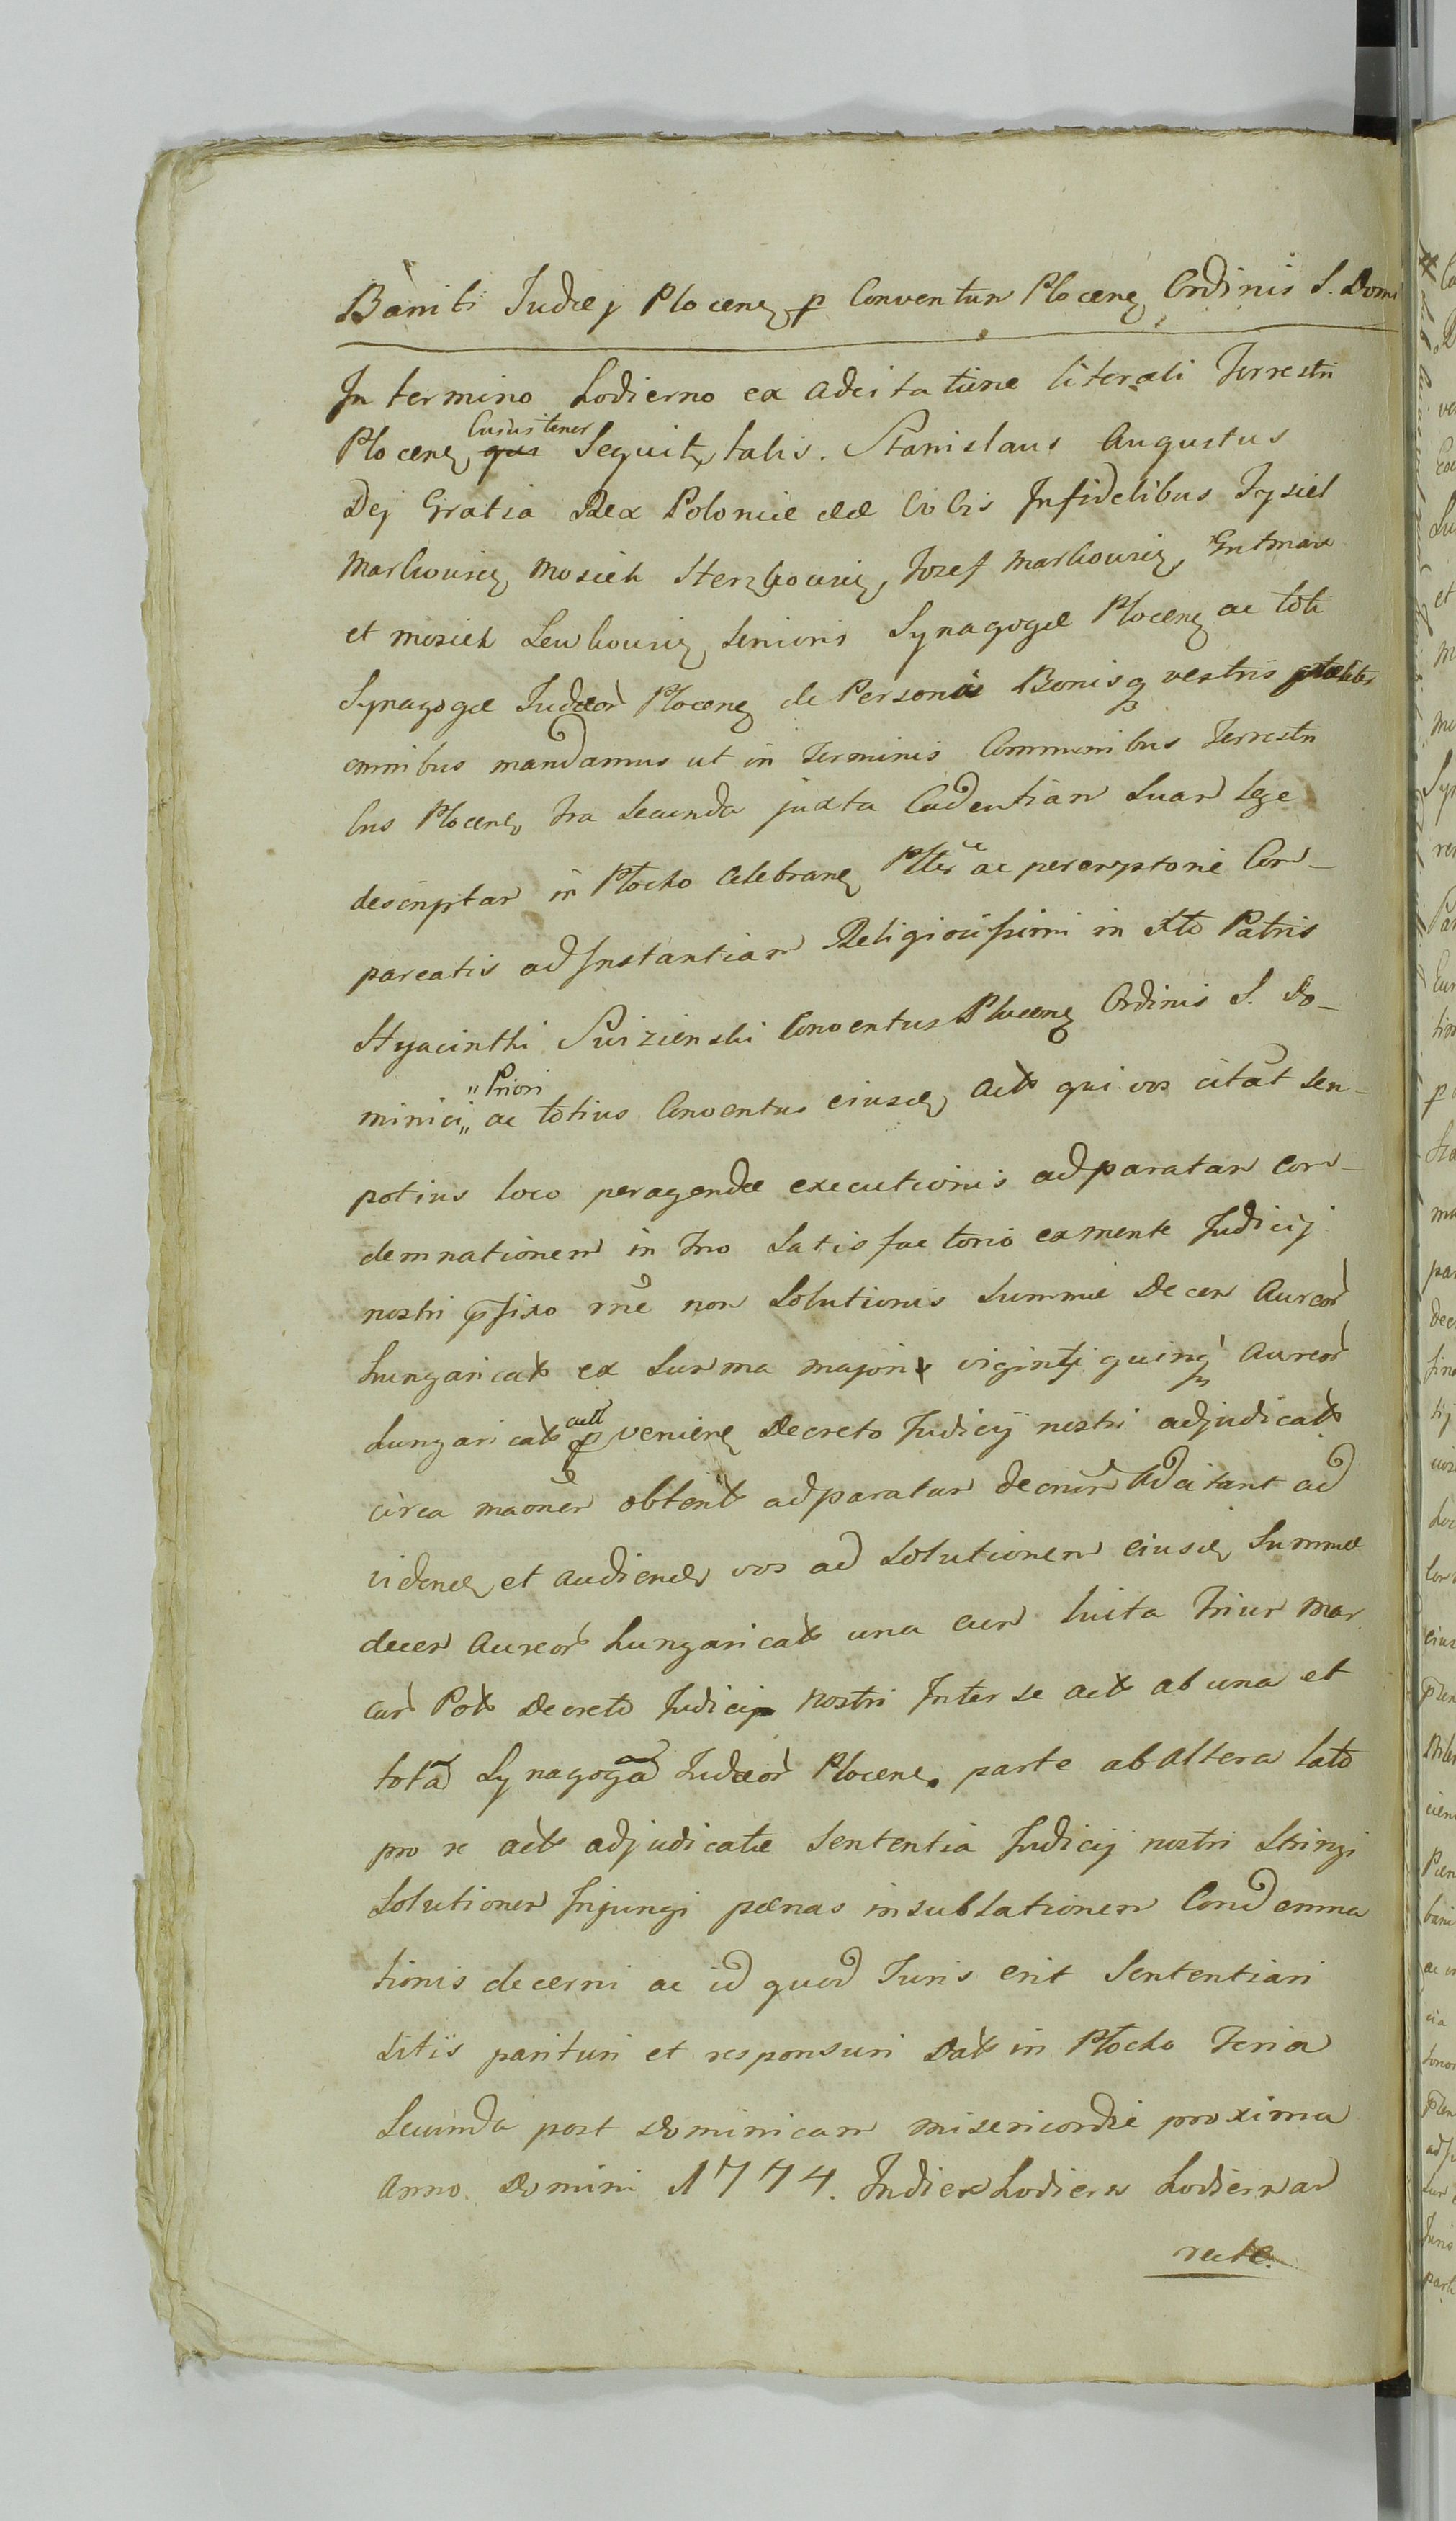 Baniti Judæj Plocens p Conventum Plocens Ordinis S. Domi
In termino hodierno ex adcitatione literali Terrestri
Plocens Cujus tenor Sequitr talis. Stanislaus Augustus
Dej Gratia Rex Poloniæ &c Vobis Infidelibus Jysiel
Markowicz Mosiek Herszkowicz, Jozef Markowicz,
et Mosiek Lewkowicz Senioris Synagogæ Plocens ac toti
Synagogæ Judæor Plocens de Personis Bonisq vestris
omnibus mandamus ut in Terminis Communibus Terrestri
bus Plocens fra secunda juxta Cadentiam Suam lege
descriptam in Płocko celebrans Pltr ac peremptorie Com-
pareatis ad Instantiam Religiosissimi in Xto Patris
Hyacinthi Conventus Plocens Ordinis S. Do-
minici " Priori " ac totius Conventus eiusd Act qui vos citat sen-
potius loco peragendæ executionis ad paratam con-
demnationem in Tno Satisfactorio ex mente Judicij
nostri pfixo rne non Solutionis Summæ Decem Aureor
hungarical ex Summa majori viginti quinq Aureor
hungarical act pveniens Decreto Judicij nostri adjudicat
circa maonem obtent ad paratam decnem Adcitant ad
videnđ et audiend vos ad Solutionem eiusd Summæ
decem Aureor hungarical una cum luita Trium Mar
car Pol Decreto Judicij nostri Inter se act ab una et
totā Synagogā Judæor Plocens parte ab altera lato
pro re act adjudicatæ Sententia Judicij nostri Stringi
Solutionem Injungi pænas in sublationem Condemna
tionis decerni ac id quod Juris erit Sententiari
Sitis parituri et responsuri Dat in Płocko Feria
Secunda post Dominicam Misericordiæ proxima
Anno Domini 1774. In diem hodiern hodiernam
recte.